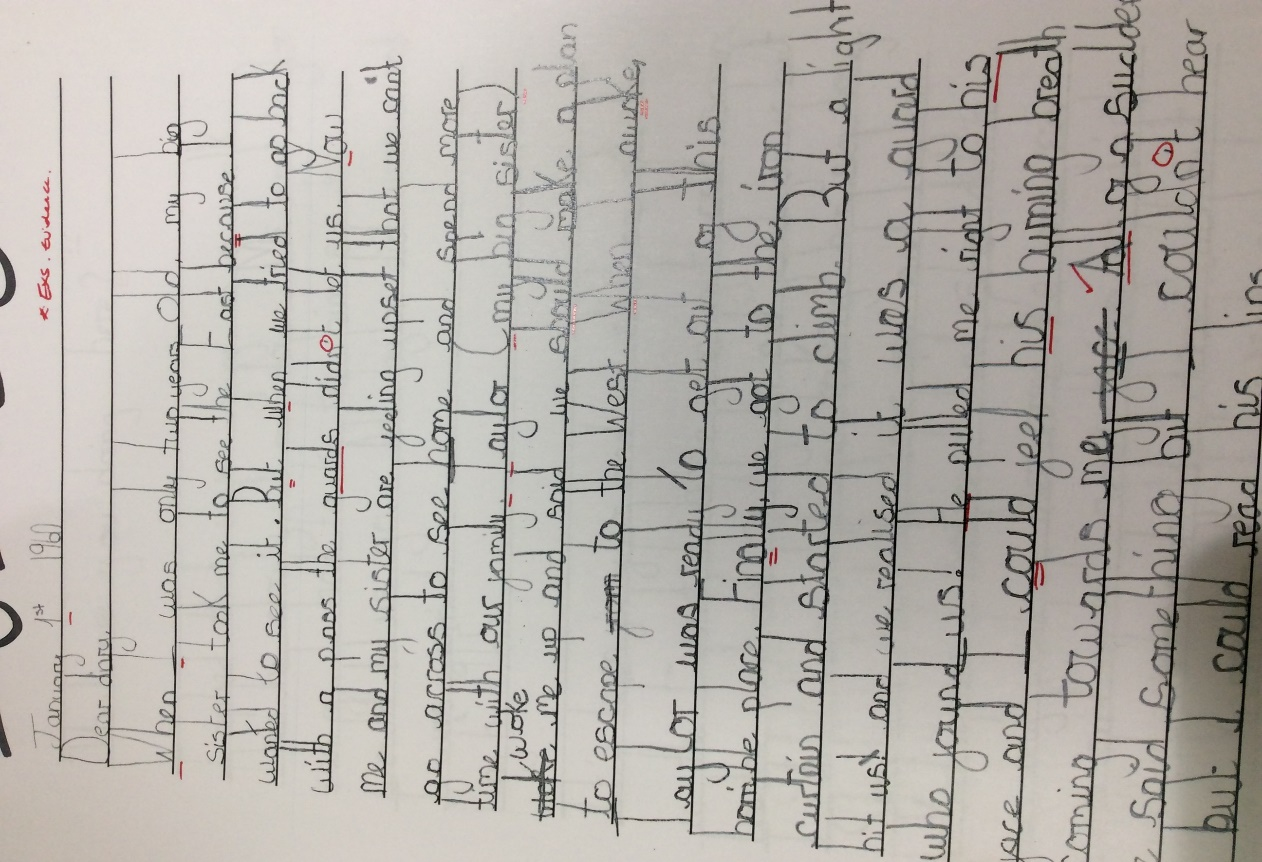 * EXS. evidence.
January 1st 1960
Dear diary,
When I was only two years Old my big
sister took me to see the East because I
wanted to see it. But when we tried to go back
with a pass the guards didnt let us. Now
me and my sister are feeling upset that we cant
go across to see home and spend more
time with our family. taylor (my big sister)
woke me up and said we should make a plan
to escape to the West. When I awoke,
taylor was ready to get out of this
horrible place. Finally, we got to the iron
curtain and started to climb. But a light
hit us! and we realised it was a guard
who found us! He pulled me right to his
face and I could feel his fuming breath
coming towards me. All of a sudden
he said something but I couldnt hear
but I could read his lips